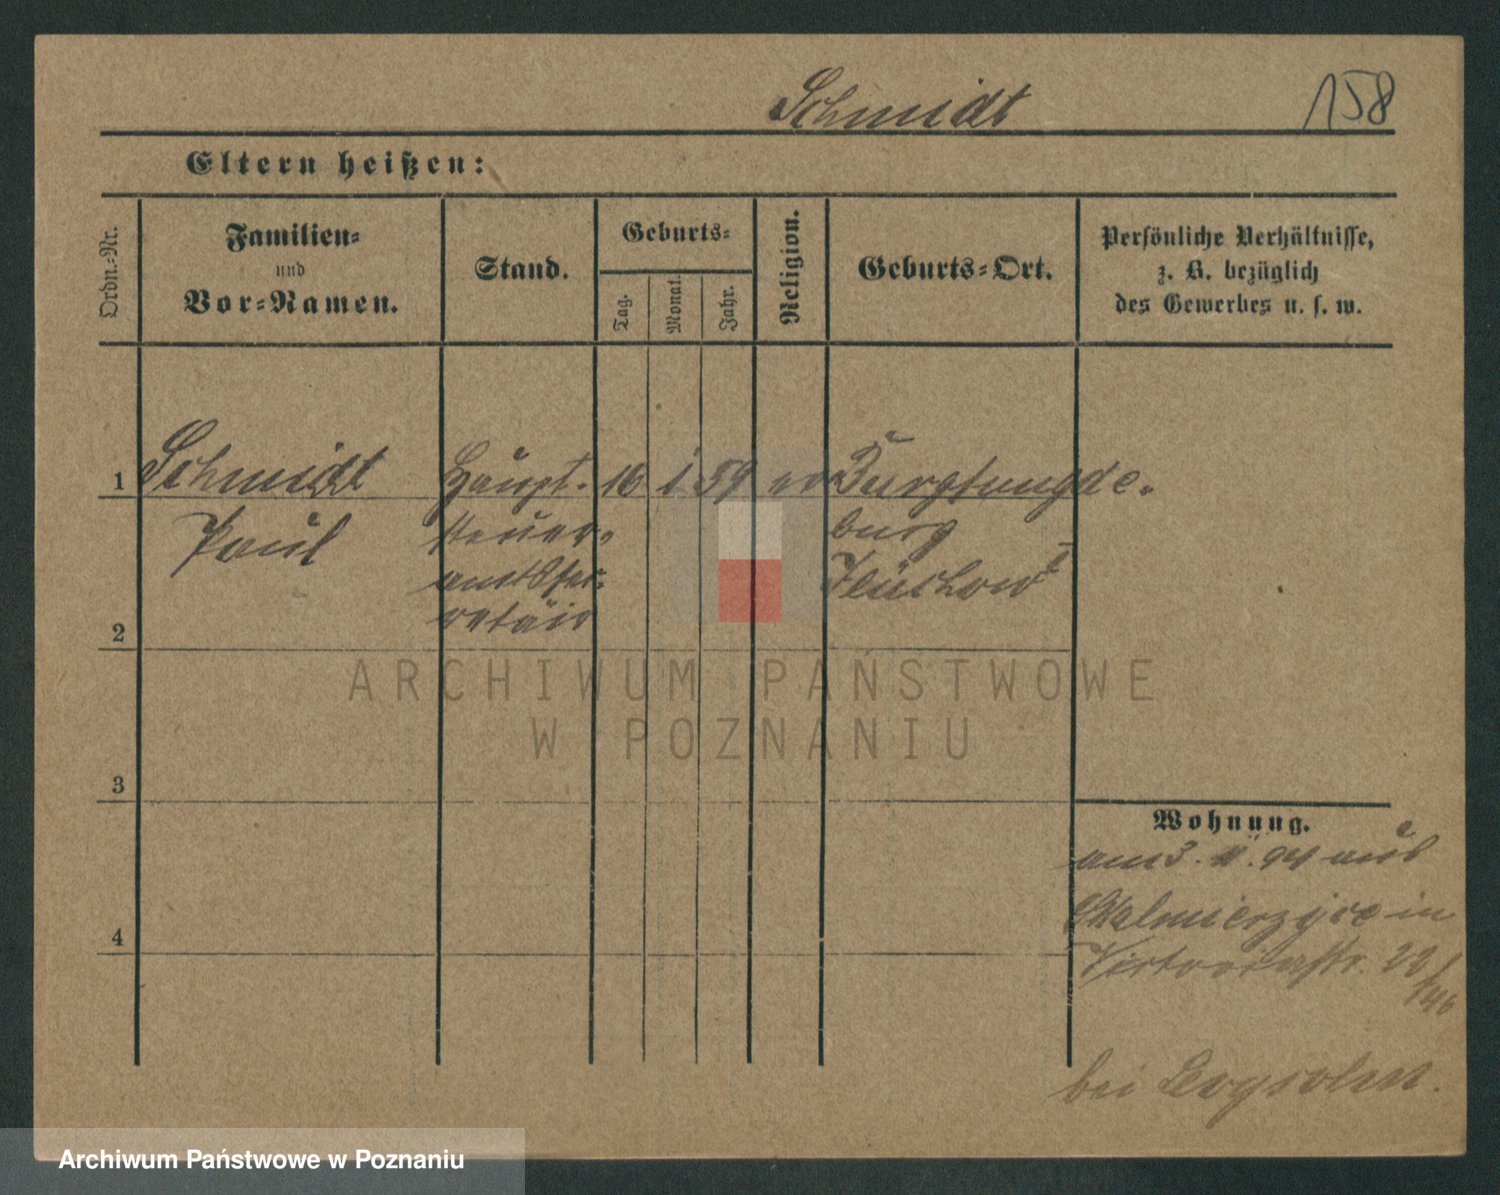 Schmidt 158
Eltern heißen:
Ordn.-Nr.
Familien-
und
Vor-Namen.
Stand.
Geburts-
Tag.
Monat.
Jahr.
Religion.
Geburts-Ort.
Persönliche Verhältnisse,
z. B. bezüglich
des Gewerbes u. s. w.
1 Schmidt Haupt- 16 1 59 ev
Paul steuer-
burg
amtsse-
retair
2
3
4
Wohnung.
am 3. 11. 94 aus
in
Victoriastr. 22
bei
ARCHIWUM PAŃSTWOWE
W POZNANIU
Archiwum Państwowe w Poznaniu